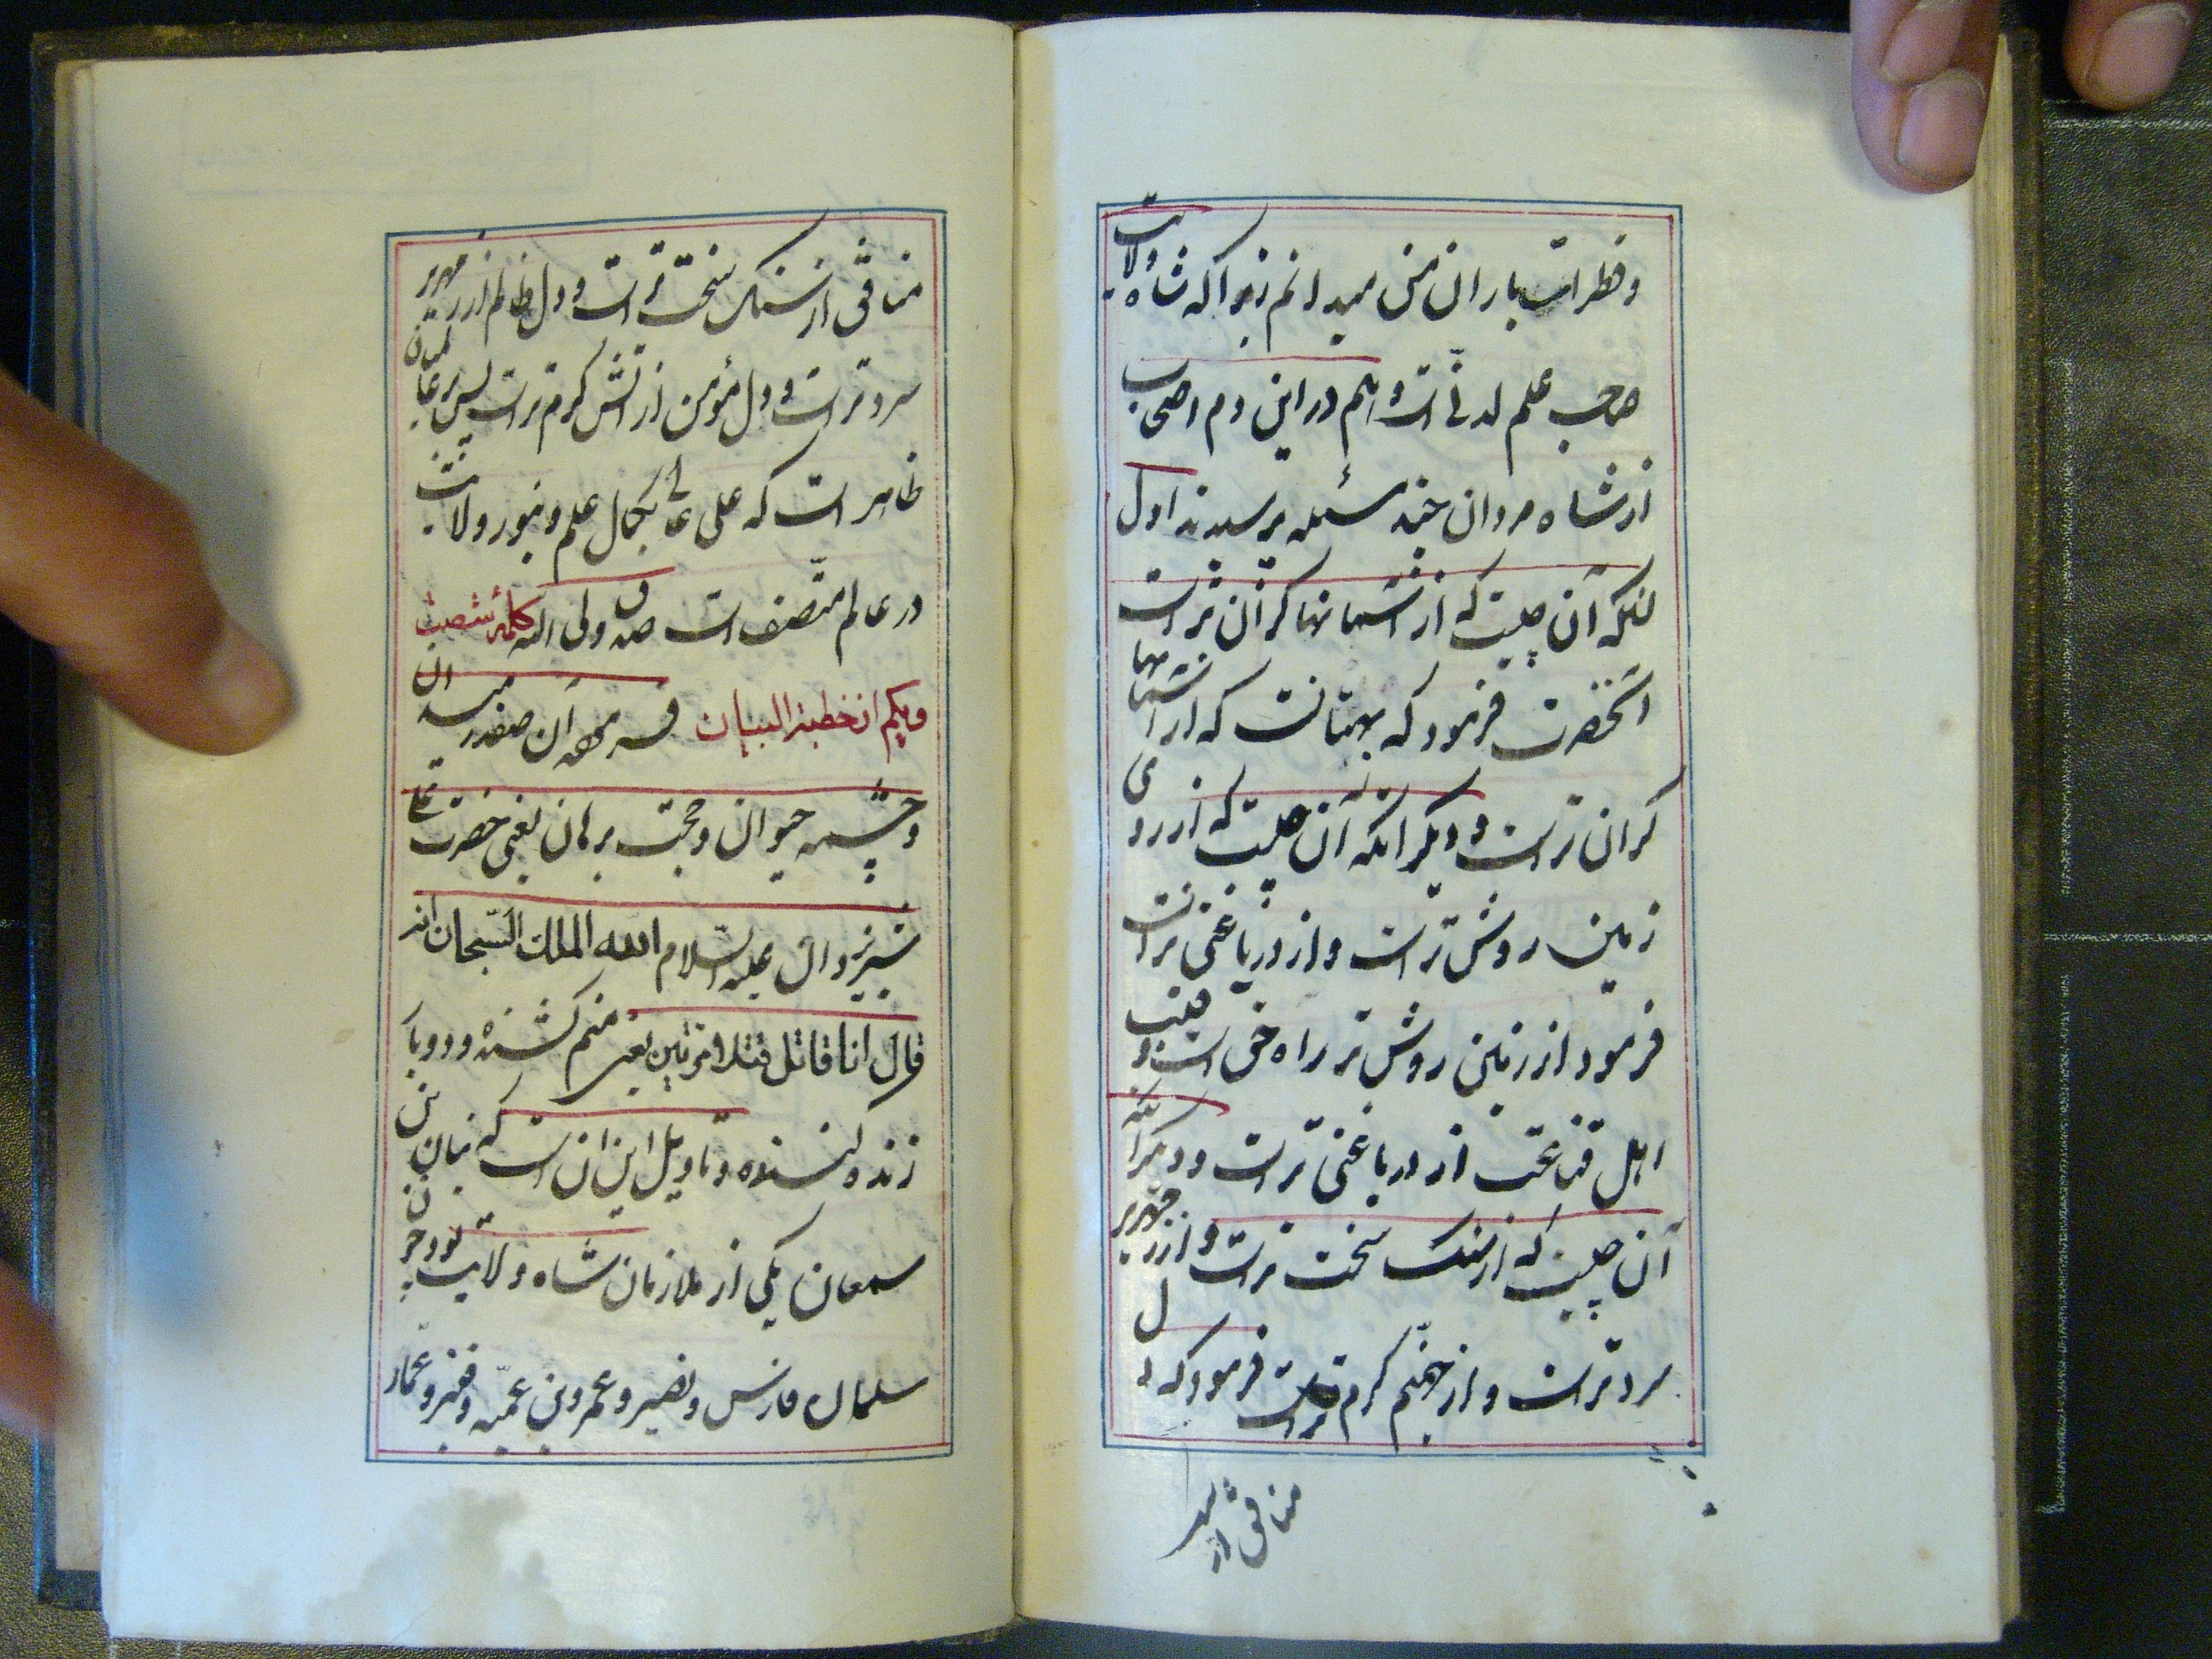 وقطرات باران من میدانم زیرا که شاه ولایت
صاحب علم لدنّی است و هم در این دم اصحاب
از شاه مردان چند مسئله پرسیدند اول
انکه آن چیست که از آسمانها گران تر است
آنحضرت فرمود که بهتانست که از آسمانها
کران تر است و دیگر انکه آن چیست که از روی
زمین روشن تر است و از دریا غنی تر است
فرمود از زمین روشن تر راه حق است و قلب
اهل قناعت از دریا غنی تر است و دیگر آنکه
آن چیست که از سنک سخت تر است و از زمهریر
سرد تر است و از جهنّم کرم تر است فرمود که دل
منافق از سنک
منافق از سنک سخت تر است و دل ظالم از زمهریر
سرد تر است و دل مؤمن از آتش کرم تر است پس بر عالمیان
ظاهر است که علی عالی بکمال علم و بنور ولایت
در عالم متّصف است صدق ولی الله کلمهٔ شصت
ویکم از خطبة البیان فرمود آن صفدر میدان
و چشمه حیوان و حجت برهان یعنی حضرت علی
شیر یزدان علیه السلام الله الملک السّبحان انه
قال انا قاتل قتلا مرتین یعنی منم کشنده دو بار
زنده کننده و تاویل این ان است که بنیان بن
سمعان یکی از ملازمان شاه ولایت بود چون
سلمان فارس و نصیر و عمرو بن عمیّه و قنبر و عمّار